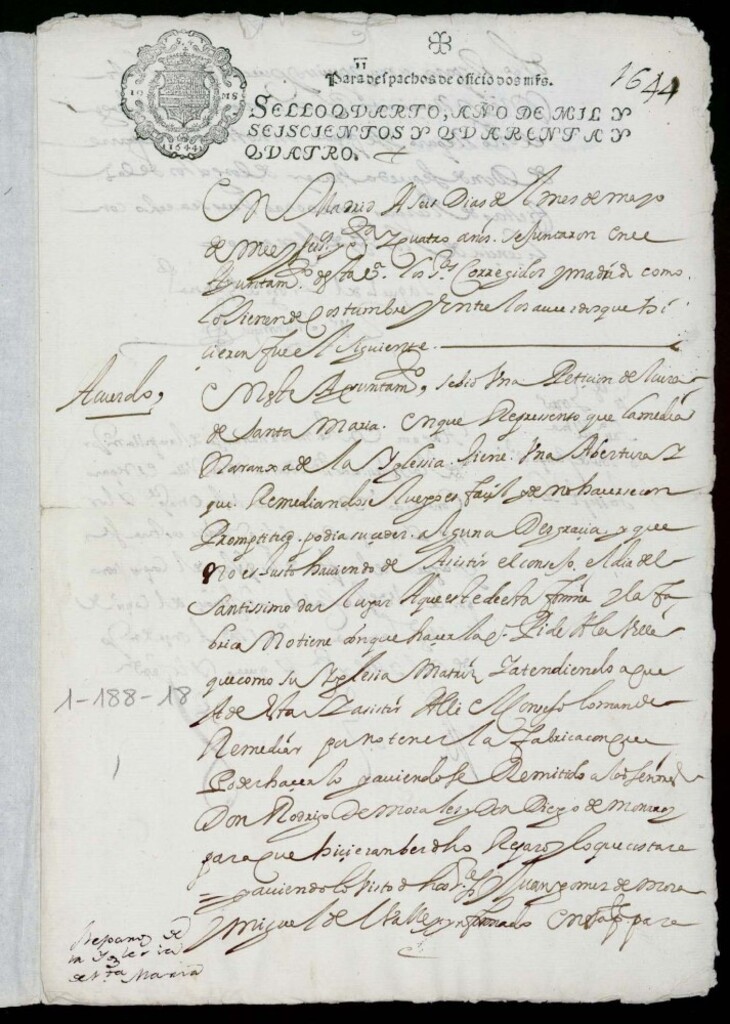 1644
Para despachos de oficio dos mrs.
SELLO QVARTO, AÑO DE MIL Y
SEISCIENTOS Y QVARENTA Y
QVATRO.
10 MS
1644
En Madrid A seis Dias del mes de mayo
de mill y seisº y qª y quatro años. se juntaron en el
Ayuntamº desta Vª los SSes Corregidor y madrid como
lo tienen de costumbre y entre los acuerdos que hi
cieron fue el siguiente
Acuerdo,
En este Ayuntamº, se bio Una Peticion del cura
de Santa Maria. en que Represento que la media
Naranxa de la Yglessia. tiene. Una Abertura y
que. Remediandose luego es façil y de no hacerse con
Promptitud. podia suceder. alguna Desgracia. y que
No es Justo haviendo de Asistir el consejo. el dia del
Santissimo dar lugar A que este de esta forma y la fa
brica No tiene con que hacerlo Pide A la Villa
que como su Yglesia Matriz y atendiendo a que
A de Yr a asistir Alli el Consejo lo mande
Remediar por no tener la Fabrica con que
Poderhacerlo y aviendose Remitido a los señores
Don Rodrigo De Morales y Don Diego de Monrroy
para que hicieran ber dho Reparo y lo que costara
= y aviendolo Visto dhos ss. Juan gomez de mora
y Miguel del Valle y ynformado
1-188-18
Reparo de
la Yglesia
de Sta Maria